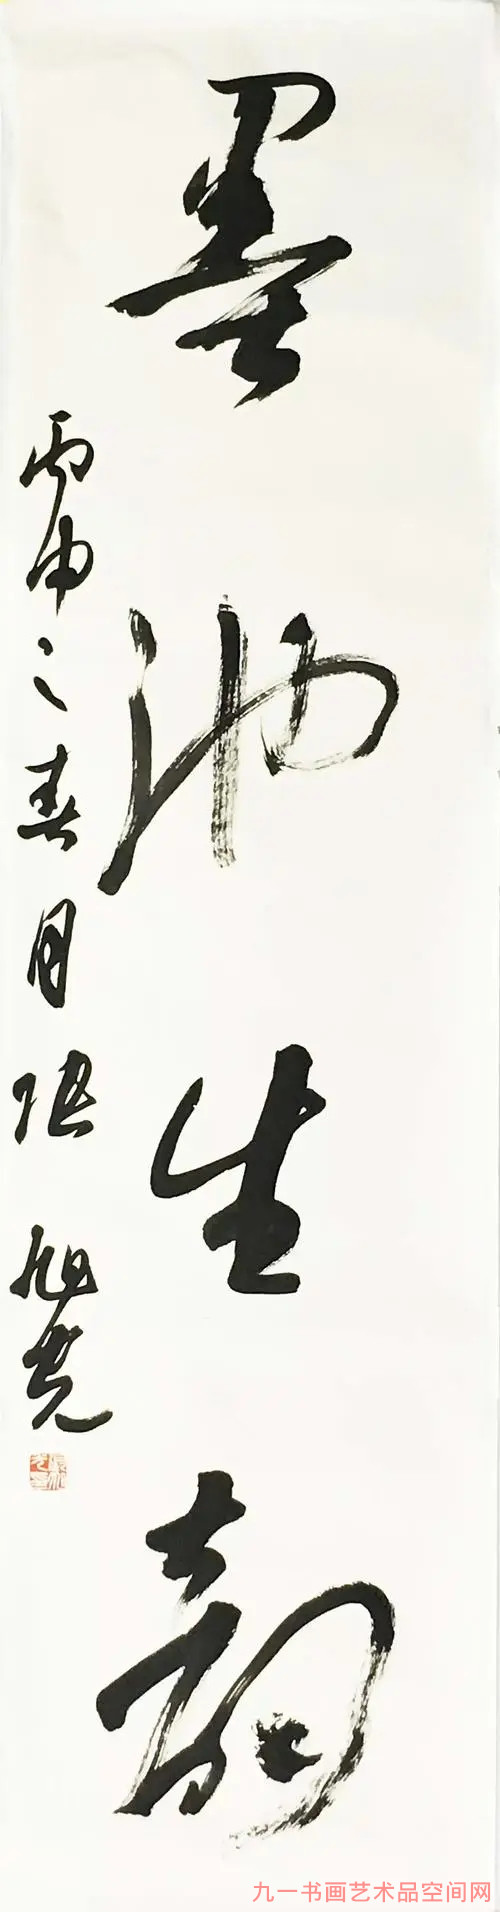 墨池生韵
丙申之春月张旭光
九一书画艺术品空间网